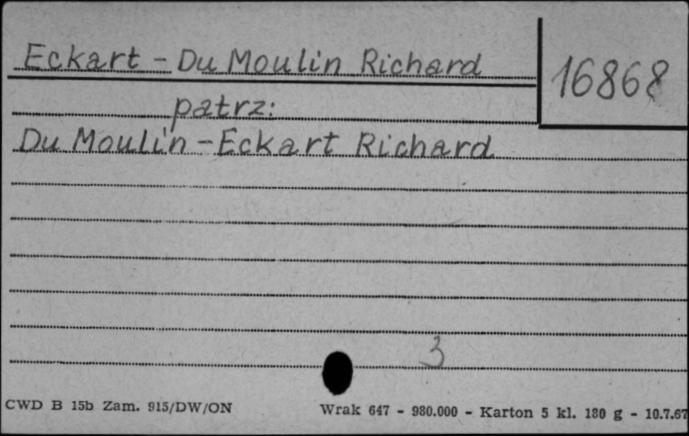 Eckart - Du Moulin Richard
16868
patrz:
Du Moulin - Eckart Richard
3
CWD B 15b Zam. 915/DW/ON
Wrak 647 - 980.000 - Karton 5 kl. 180 g - 10.7.67